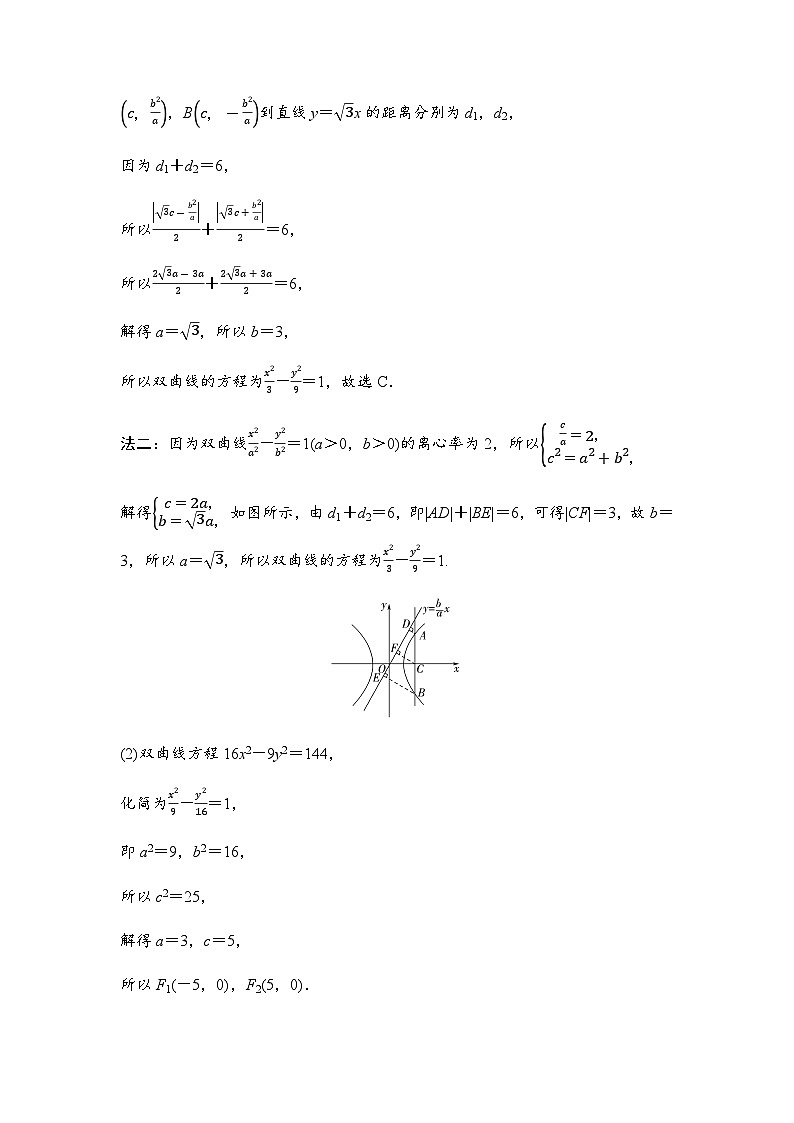 (c, b²/a), B(c, －b²/a)到直线 y＝√3x 的距离分别为 d₁，d₂，
因为 d₁＋d₂＝6，
所以|√3c－b²/a|/2＋|√3c＋b²/a|/2＝6，
所以(2√3a－3a)/2＋(2√3a＋3a)/2＝6，
解得 a＝√3，所以 b＝3，
所以双曲线的方程为x²/3－y²/9＝1，故选 C．
法二：因为双曲线x²/a²－y²/b²＝1(a＞0，b＞0)的离心率为 2，所以{c/a＝2, c²＝a²＋b²,
解得{c＝2a, b＝√3a, 如图所示，由 d₁＋d₂＝6，即|AD|＋|BE|＝6，可得|CF|＝3，故 b＝
3，所以 a＝√3，所以双曲线的方程为x²/3－y²/9＝1.
y
y=b/a x
D
A
F
O
C
x
E
B
(2)双曲线方程 16x²－9y²＝144，
化简为x²/9－y²/16＝1，
即 a²＝9，b²＝16，
所以 c²＝25，
解得 a＝3，c＝5，
所以 F₁(－5，0)，F₂(5，0)．